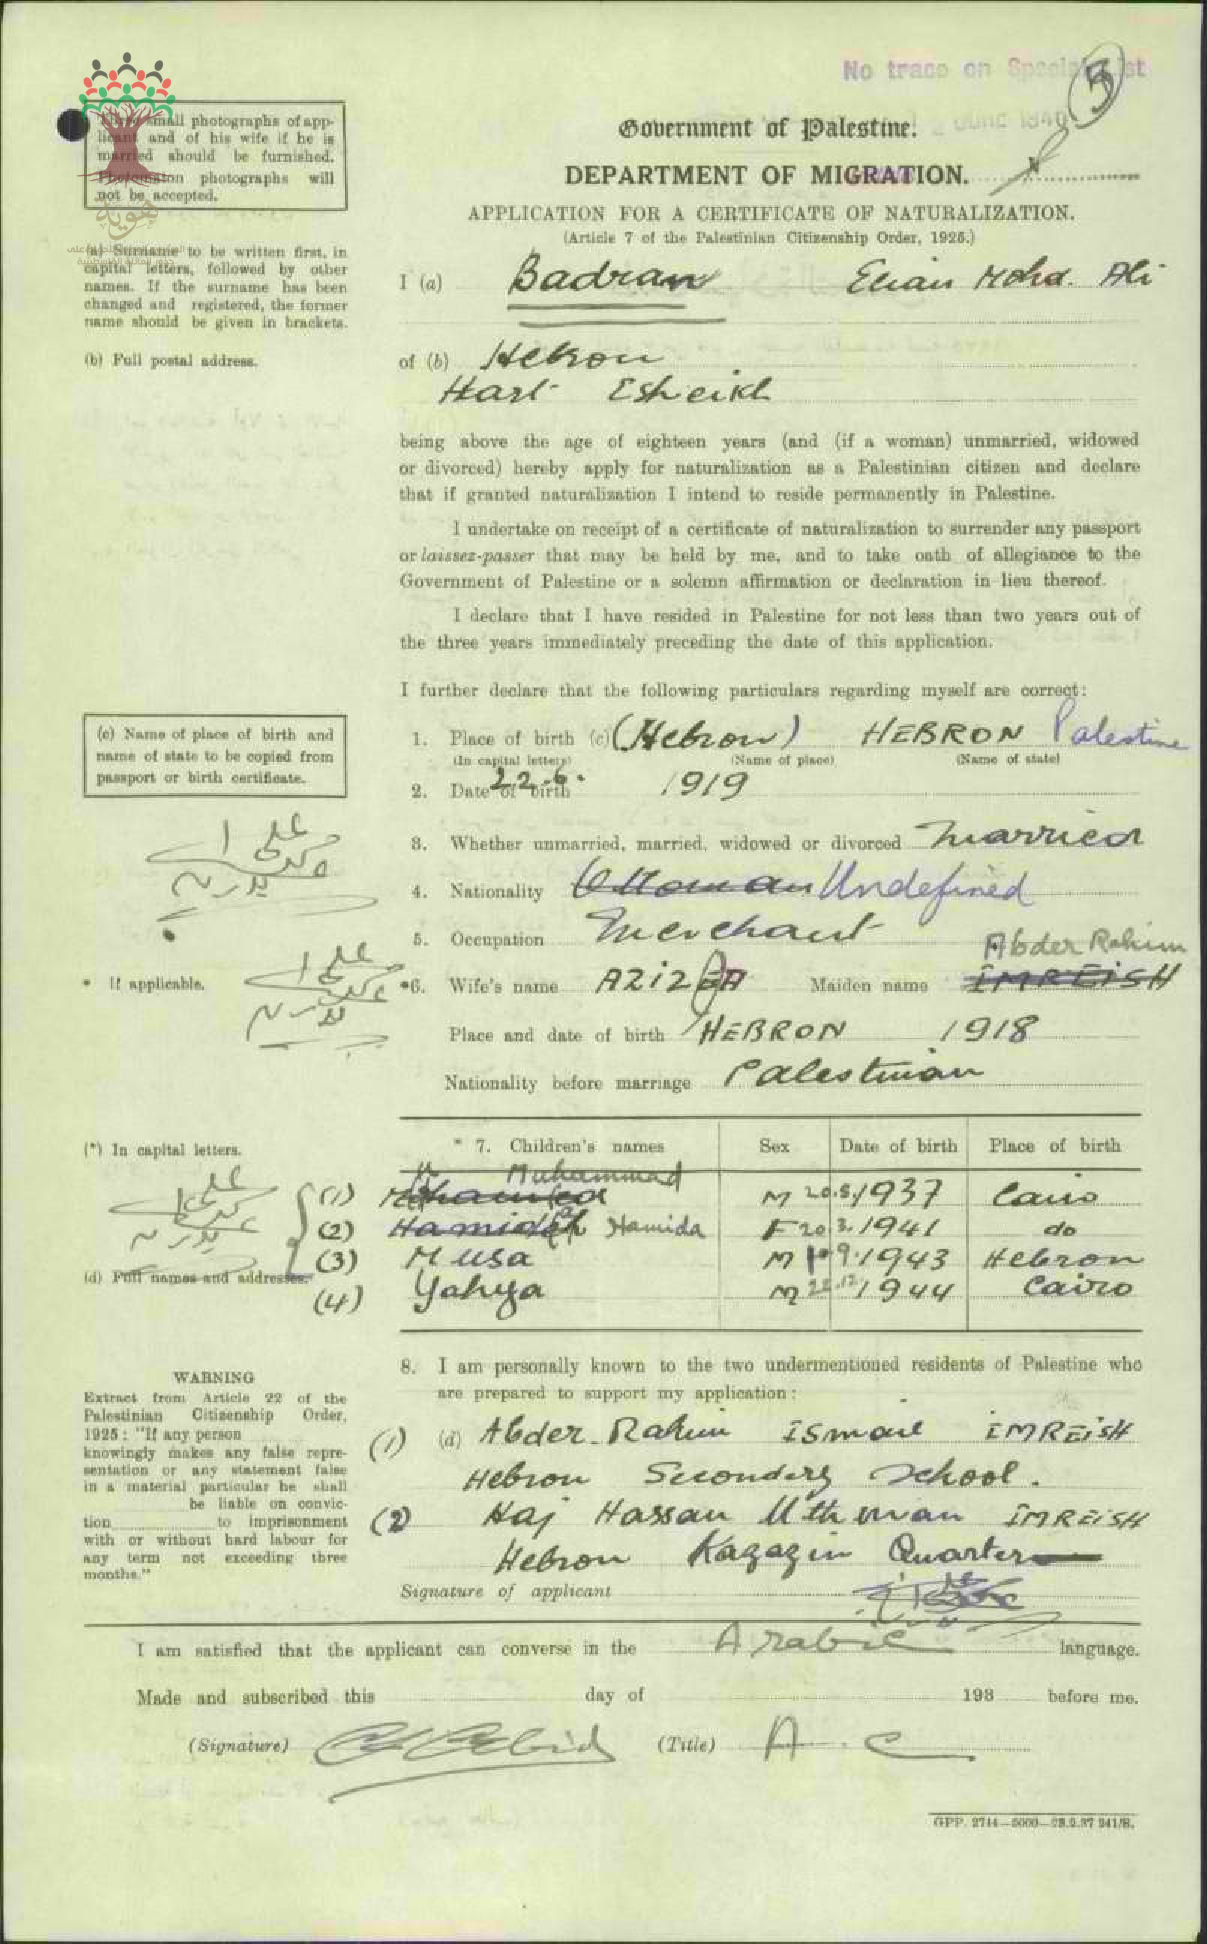 No trace on Special List
5
Three small photographs of app-
licant and of his wife if he is
married should be furnished.
Photomaton photographs will
not be accepted.
هوية
Government of Palestine.
DEPARTMENT OF MIGRATION.
APPLICATION FOR A CERTIFICATE OF NATURALIZATION.
(Article 7 of the Palestinian Citizenship Order, 1925.)
(a) Surname to be written first, in
capital letters, followed by other
names. If the surname has been
changed and registered, the former
name should be given in brackets.
I (a) Badran Elian Mohd. Ali
(b) Full postal address.
of (b) Hebron
Hart Esheikh
being above the age of eighteen years (and (if a woman) unmarried, widowed
or divorced) hereby apply for naturalization as a Palestinian citizen and declare
that if granted naturalization I intend to reside permanently in Palestine.
I undertake on receipt of a certificate of naturalization to surrender any passport
or laissez-passer that may be held by me, and to take oath of allegiance to the
Government of Palestine or a solemn affirmation or declaration in lieu thereof.
I declare that I have resided in Palestine for not less than two years out of
the three years immediately preceding the date of this application.
I further declare that the following particulars regarding myself are correct:
(c) Name of place of birth and
name of state to be copied from
passport or birth certificate.
1. Place of birth (c) (Hebron) HEBRON Palestine
(In capital letters) (Name of place) (Name of state)
2. Date of birth 22.6. 1919
3. Whether unmarried, married, widowed or divorced married
4. Nationality Ottoman Undefined
5. Occupation Merchant
Abder Rahim
* If applicable.
*6. Wife's name AZIZA Maiden name IMREISH
Place and date of birth HEBRON 1918
Nationality before marriage Palestinian
(*) In capital letters.
* 7. Children's names Sex Date of birth Place of birth
Muhammad
(1) M 20.5.1937 Cairo
(2) Hamideh Hamida F 20.2.1941 do
(3) Musa M 9.1943 Hebron
(d) Full names and addresses.
(4) Yahya M 12.1944 Cairo
8. I am personally known to the two undermentioned residents of Palestine who
are prepared to support my application:
(1) (d) Abder-Rahim ISmail IMREISH
Hebron Secondery School.
(2) Haj Hassan Uthman IMREISH
Hebron Kazazin Quarter
WARNING
Extract from Article 22 of the
Palestinian Citizenship Order,
1925: "If any person
knowingly makes any false repre-
sentation or any statement false
in a material particular he shall
be liable on convic-
tion to imprisonment
with or without hard labour for
any term not exceeding three
months."
Signature of applicant
I am satisfied that the applicant can converse in the Arabic language.
Made and subscribed this day of 193 before me.
(Signature) (Title) A. C
GPP. 2744—5000—28.2.37 241/S.